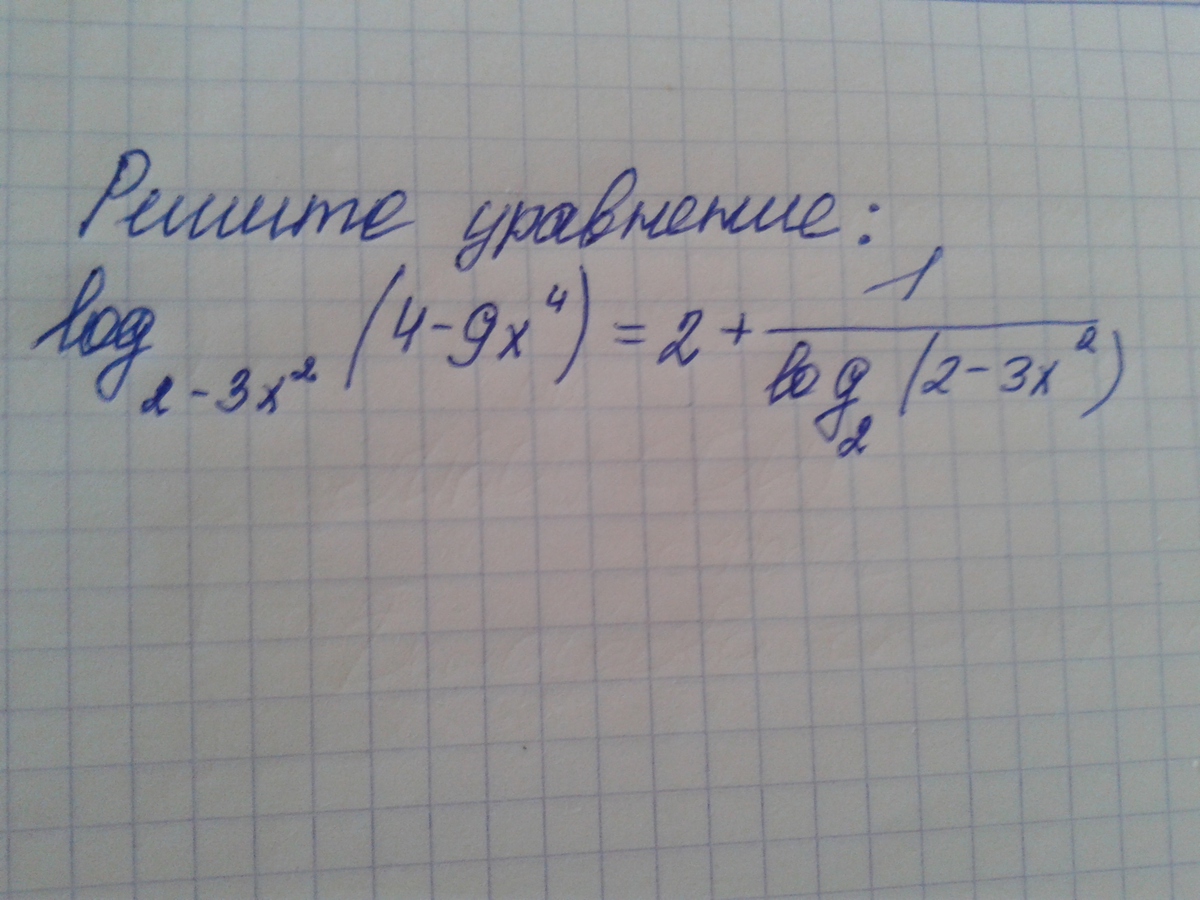 Решите уравнение:
log₂₋₃ₓ² (4-9x⁴) = 2 + 1/log₂ (2-3x²)